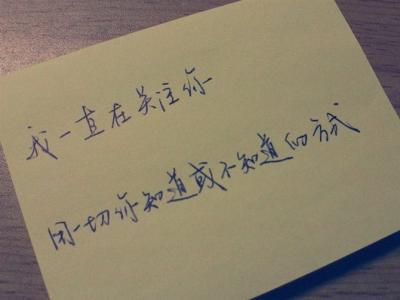 我一直在关注你
用一切你知道或不知道的方式